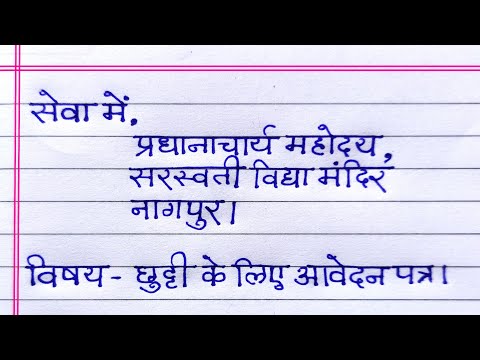 सेवा में,
प्रधानाचार्य महोदय,
सरस्वती विद्या मंदिर
नागपुर।
विषय- छुट्टी के लिए आवेदन पत्र।